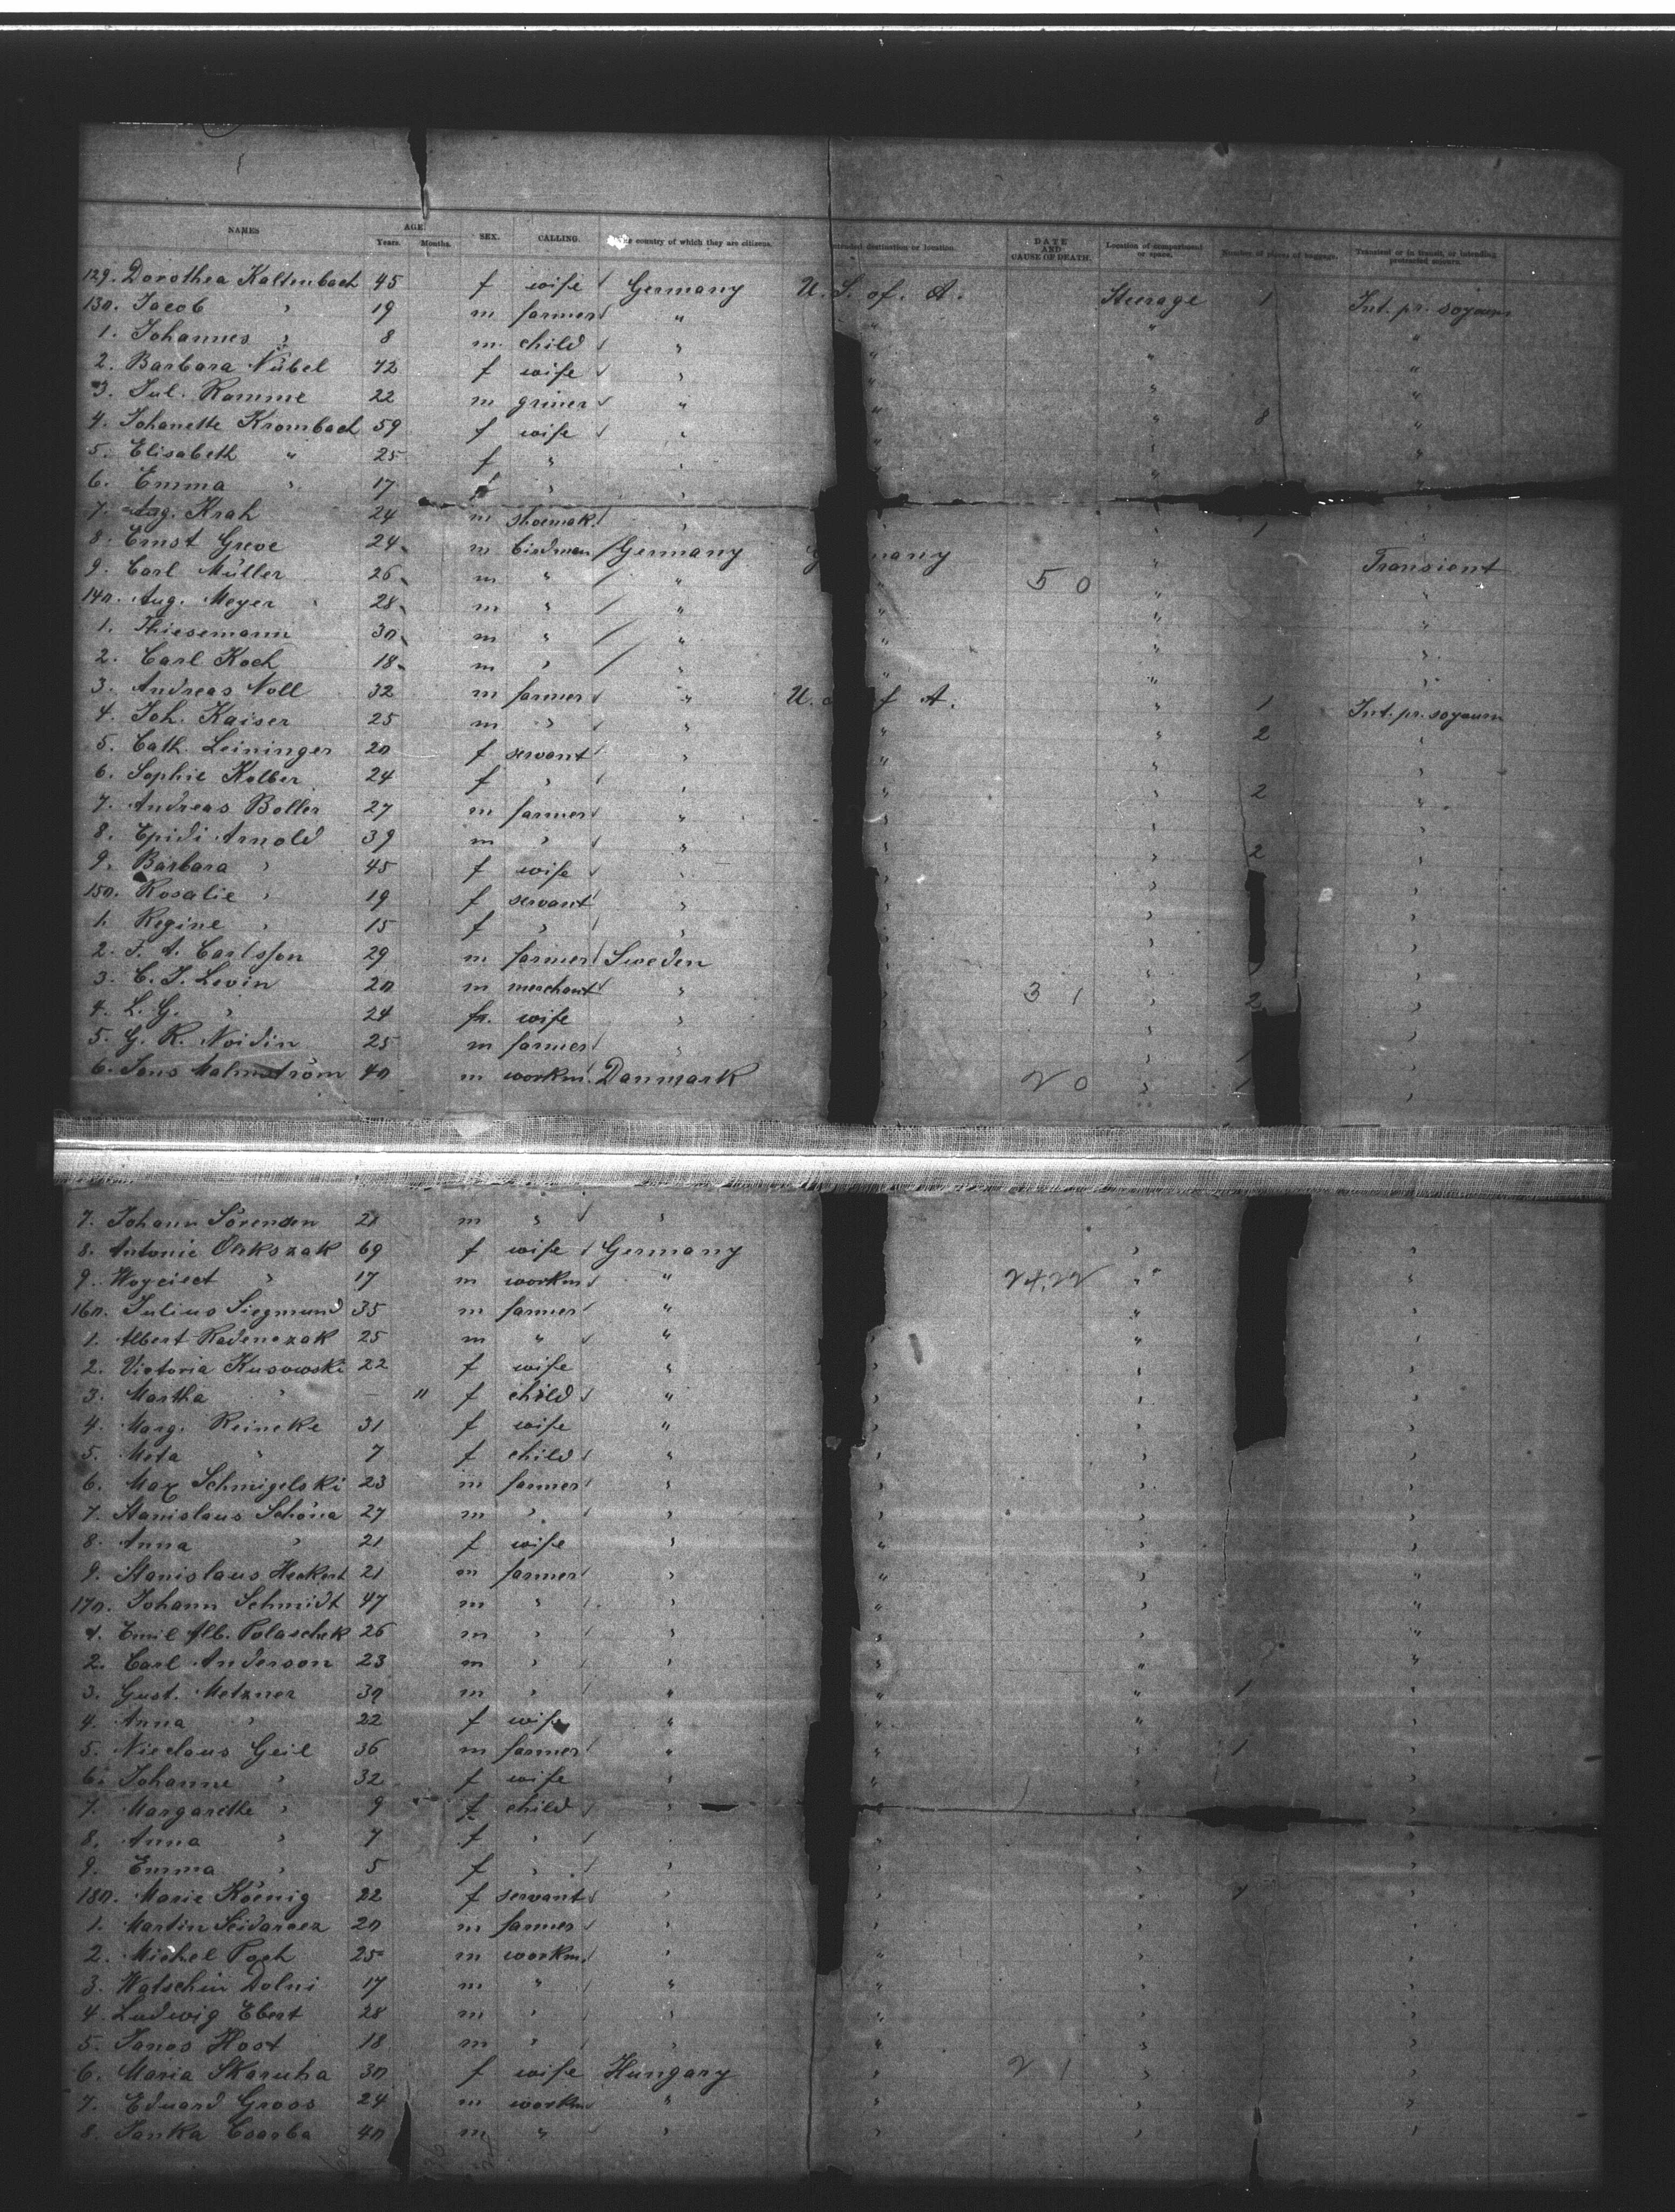 NAMES AGE Years. Months. SEX. CALLING. country of which they are citizens. destination or location. DATE AND CAUSE OF DEATH. Location of compartment or space. Number of pieces of baggage. Transient or in transit, or intending protracted sojourn.
129. Dorothea Kaltenbach 45 f wife Germany U. S. of. A. Steerage 1 Int. pr. soyourn
130. Jacob " 19 m farmer " " " "
1. Johannes " 8 m child " " " "
2. Barbara Nübel 72 f wife " " "
3. Jul. Ramme 22 m " " " "
4. Johanette Krombach 59 f wife " " " 8 "
5. Elisabeth " 25 f " " " " "
6. Emma " 17 f " " " "
7. Aug. Krah 24 m shoemak. " " 1 "
8. Ernst Greve 24 m birdman Germany G many " Transient
9. Carl Müller 26 m " " " 5 0 " "
140. Aug. Meyer 28 m " " " " "
1. Thiesemann 30 m " " " " "
2. Carl Koch 18 m " " " " "
3. Andreas Noll 32 m farmer " U. f A. " 1 Int. pr. soyourn
4. Joh. Kaiser 25 m " " " " 2 "
5. Cath. Leininger 20 f servant " " " "
6. Sophie Kolber 24 f " " " " 2 "
7. Andreas Boller 27 m farmer " " " "
8. Epidi Arnold 39 m " " " " 2 "
9. Barbara " 45 f wife " " " "
150. Rosalie " 19 f servant " " " "
1. Regine " 15 f " " " " "
2. F. A. Carlsson 29 m farmer Sweden " " "
3. C. J. Levin 20 m merchant " " 3 1 " 2 "
4. L. G. " 24 f wife " " "
5. G. R. Noidin 25 m farmer " " 1 "
6. Jens Malmström 40 m workm. Danmark 2 0 " 1 "
7. Johann Sörensen 28 m " "
8. Antonie 69 f wife Germany " "
9. Woyciect " 17 m workm " 24.22 " "
160. Julius Siegmund 35 m farmer " " "
1. Albert Radenczak 25 m " " " "
2. Victoria Kusowski 22 f wife " " " "
3. Martha " — 11 f child " " " "
4. Marg. Reincke 31 f wife " " " "
5. Meta " 7 f child " " " "
6. Max Schmigelski 23 m farmer " " " "
7. Stanislaus Schöna 27 m " " " " "
8. Anna " 21 f wife " " " "
9. Stanislaus Heckert 21 m farmer " " " "
170. Johann Schmidt 47 m " " " " "
1. Emil Alb. Polaschek 26 m " " " " "
2. Carl Anderson 23 m " " " " "
3. Gust. Metzner 30 m " " " " 1 "
4. Anna " 22 f wife " " " "
5. Nicolaus Geil 36 m farmer " " " 1 "
6. Johanne " 32 f wife " " " "
7. Margarethe " 9 f child " " " "
8. Anna " 7 f " " " "
9. Emma " 5 f " " " " "
180. Marie Köenig 22 f servant " " " "
1. Martin 20 m farmer " " " "
2. Michel Poch 25 m workm. " " " "
3. Watschin Dolni 17 m " " " " "
4. Ludwig Ebert 28 m " " " " "
5. Janos Host 18 m " " " " "
6. Maria Skaruha 30 f wife Hungary " 2 1 " "
7. Eduard Gross 24 m workm " " " "
8. Janka Csorba 40 m " " " " "